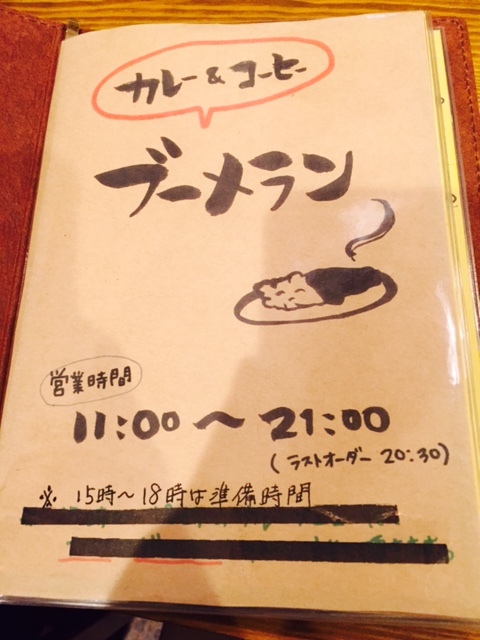 カレー&コーヒー
ブーメラン
営業時間
11:00〜21:00
(ラストオーダー 20:30)
※ 15時〜18時は準備時間